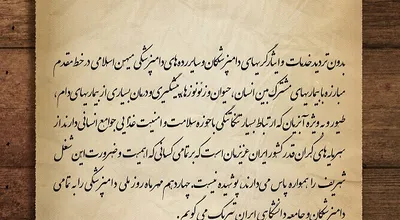 بدون تردید خدمات و ایثارگریهای دامپزشکان و سایر رده های دامپزشکی میهن اسلامی در خط مقدم
مبارزه با بیماریهای مشترک بین انسان ، حیوان و زئونوزها، پیشگیری و درمان بسیاری از بیماریهای دام ،
طیور و به ویژه آبزیان که ارتباط بسیار تنگاتنگی با حوزه سلامت و امنیت غذایی جوامع انسانی دارند از
سرمایه های گران قدر کشور ایران عزیزمان است که بر تمامی کسانی که اهمیت و ضرورت این شغل
شریف را همواره پاس می دارند، پوشیده نیست. چهاردهم مهرماه روز ملی دامپزشکی را به تمامی
دامپزشکان و جامعه دانشگاهی ایران تبریک می گویم.